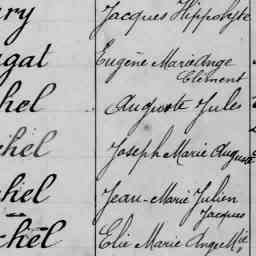 ry Jacques Hippolyte
gat Eugène Marie Ange
Clément
hel Auguste Jules
chel Joseph Marie Auguste
hel Jean-Marie Julien
Jacques
chel Elie Marie Ange Mie